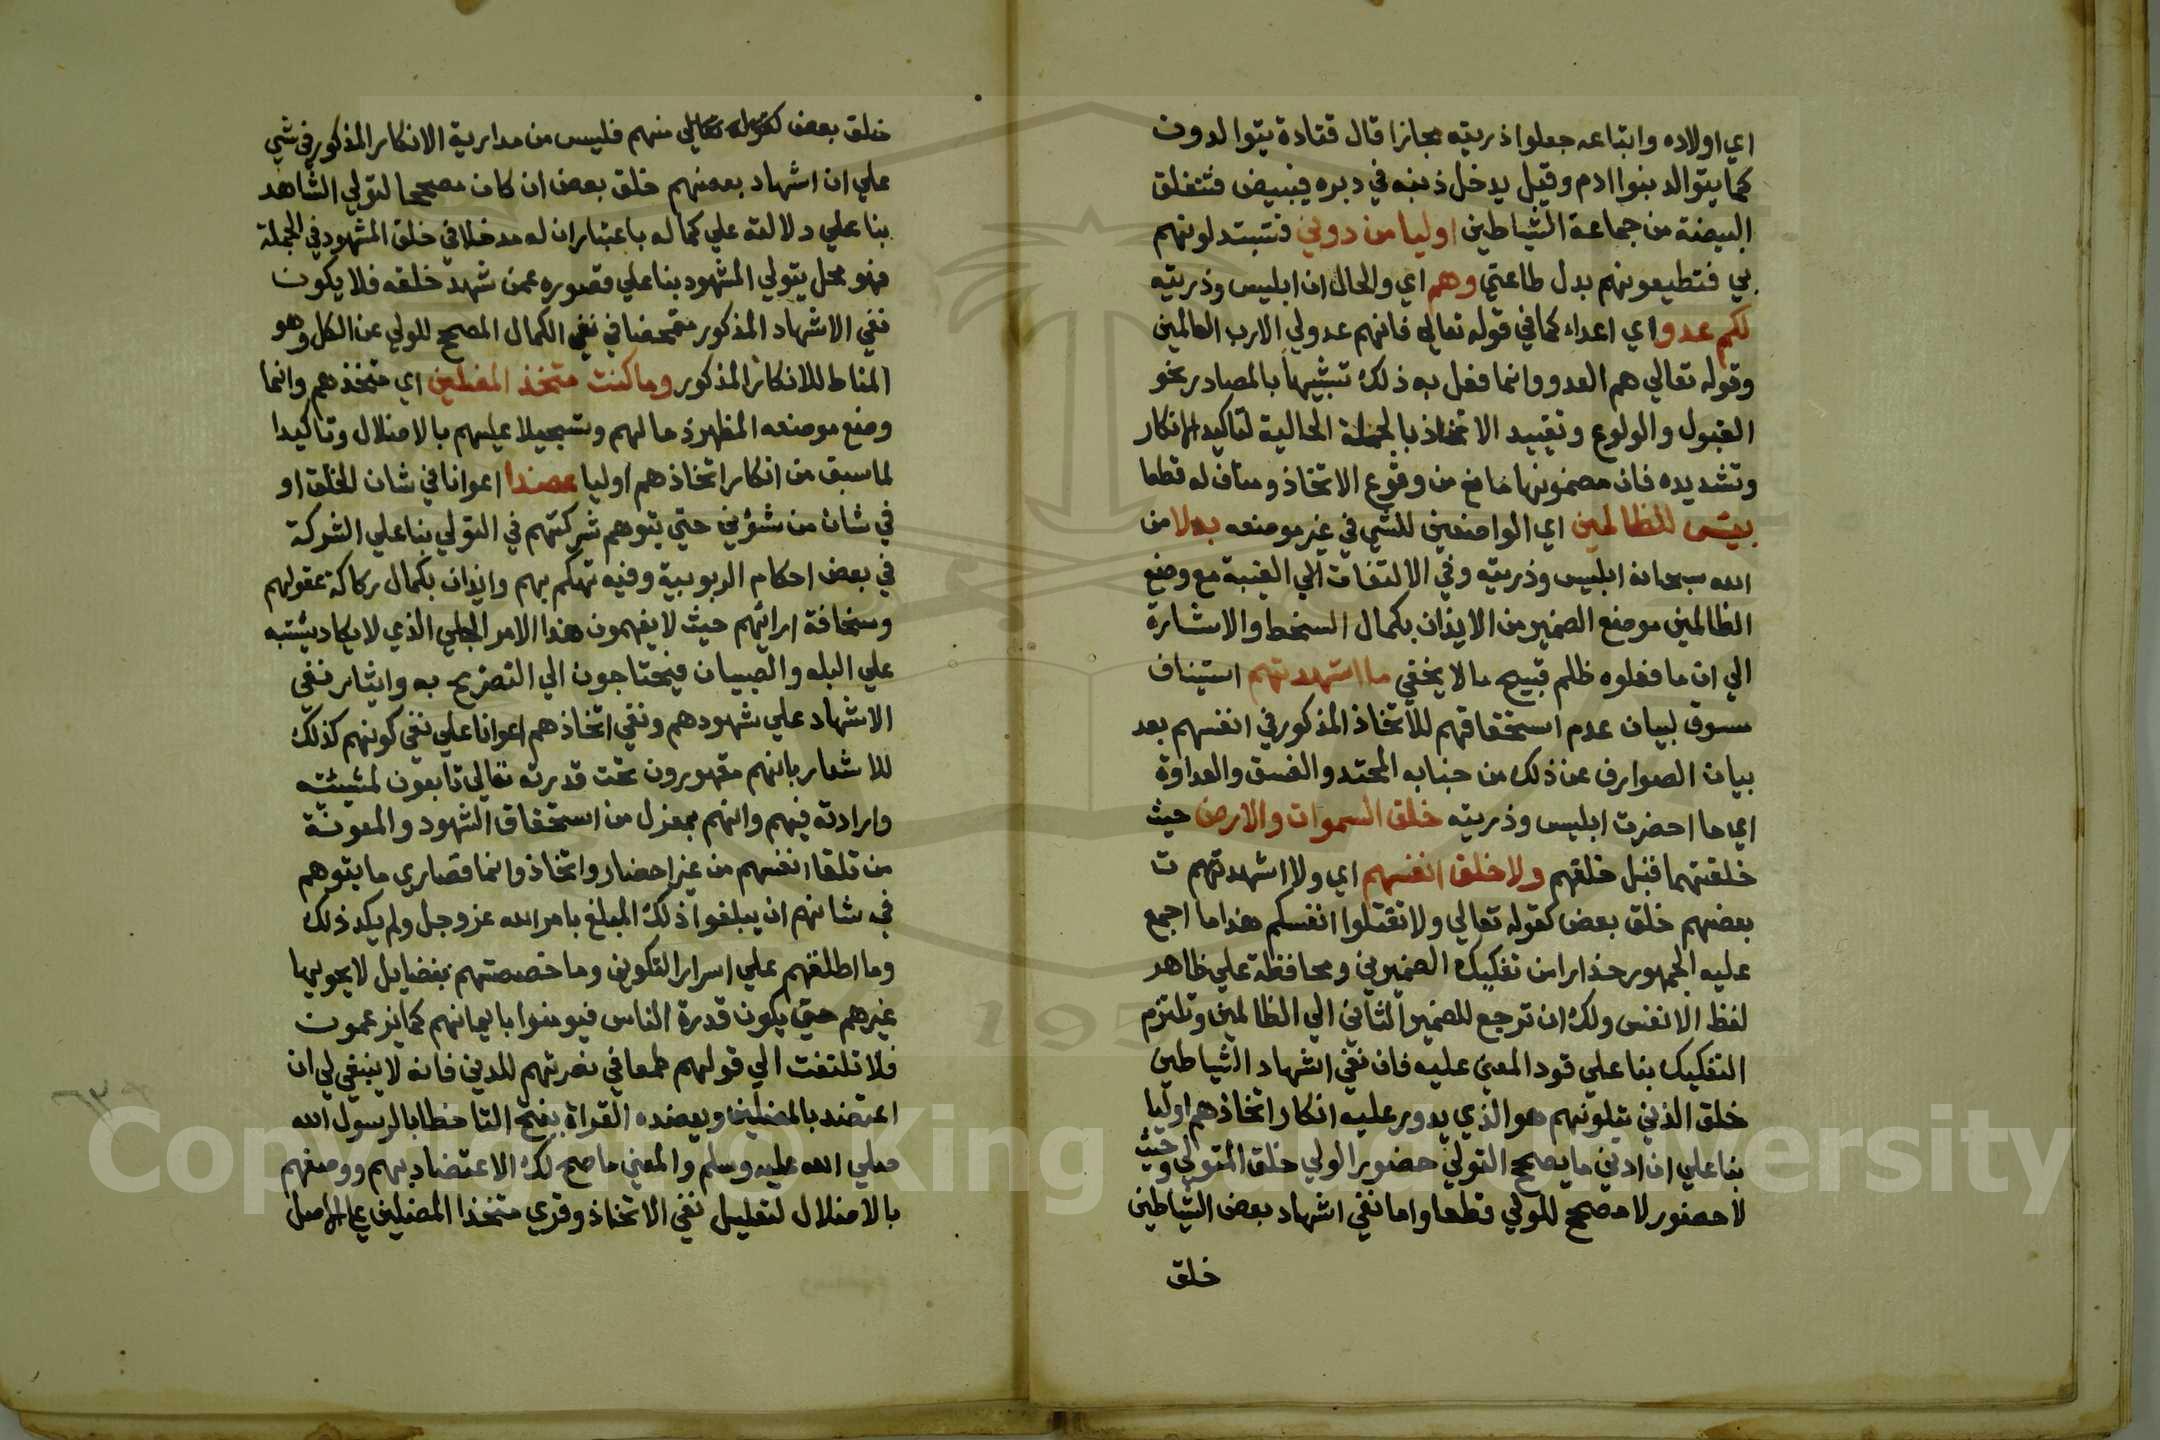 اي اولاده واتباعه جعلوا ذريته مجازا قال قتادة يتوالدون
كما يتوالد بنوا ادم وقيل يدخل ذنبه في دبره فيبيض فتنفلق
البيضة من جماعة الشياطين اوليا من دوني فتستبدلونهم
بي فتطيعونهم بدل طاعتي وهم اي والحال ان ابليس وذريته
لكم عدو اي اعداء كما في قوله تعالي فانهم عدو لي الا رب العالمين
وقوله تعالي هم العدو وانما فعل به ذلك تشبيها بالمصادر نحو
القبول والولوع وتقييد الاتخاذ بالجملة الحالية لتاكيد الانكار
وتشديده فان مضمونها مانع من وقوع الاتخاذ ومناف له قطعا
بيس للظالمين اي الواضعين للشي في غير موضعه بدلا من
الله سبحانه ابليس وذريته وفي الالتفات الي الغيبة مع وضع
الظالمين موضع الضمير من الايذان بكمال السخط والاشارة
الي ان ما فعلوه ظلم قبيح ما لا يخفي ما اشهدتهم استيناف
مسوق لبيان عدم استحقاقهم للاتخاذ المذكور في انفسهم بعد
بيان الصوارف عن ذلك من خبابه المحتد والفسق والعداوة
اي ما احضرت ابليس وذريته خلق السموات والارض حيث
خلقتهما قبل خلقهم ولا خلق انفسهم اي ولا اشهدت
بعضهم خلق بعض كقوله تعالي ولا تقتلوا انفسكم هذا ما اجمع
عليه الجمهور حذارا من تفكيك الضميرين ومحافظة علي ظاهر
لفظ الانفس ولك ان ترجع للضمير الثاني الي الظالمين وتلتزم
التفكيك بنا علي قود المعني عليه فان نفي اشهاد الشياطين
خلق الذين يتلونهم هو الذي يدور عليه انكار اتخاذهم اوليا
بنا علي ان ادني ما يصحح التولي حضور الولي خلق المتولي وحيث
لا حضور لا مصحح للولي قطعا واما نفي اشهاد بعض الشياطين
خلق
خلق بعض منهم فليس من مدارية الانكار المذكور في شي
علي ان اشهاد بعضهم خلق بعض ان كان مصححا لتولي الشاهد
بنا علي دلالته علي كماله باعتبار ان له مدخلا في خلق المشهود في الجملة
فهو مخل بتولي المشهود بنا علي قصوره عمن شهد خلقه فلا يكون
نفي الاشهاد المذكور متمحضا في نفي الكمال المصحح للولي عن الكل وهو
المناط للانكار المذكور وما كنت متخذ المضلين اي متخذهم وانما
وضع موضعه المظهر ذما لهم وتسجيلا عليهم بالاضلال وتاكيدا
لما سبق من انكار اتخاذهم اوليا عضدا اعوانا في شان الخلق او
في شان من شؤني حتي يتوهم شركتهم في التولي بنا علي الشركة
في بعض احكام الربوبية وفيه تهكم بهم وايذان بكمال ركاكة عقولهم
وسخافة ارائهم حيث لا يفهمون هذا الامر الجلي الذي لا يكاد يشتبه
علي البله والصبيان فيحتاجون الي التصريح به وايثار نفي
الاشهاد علي شهودهم ونفي اتخاذهم اعوانا علي نفي كونهم كذلك
للاشعار بانهم مقهورون تحت قدرته تعالي تابعون لمشيئته
وارادته فيهم وانهم بمعزل من استحقاق الشهود والمعونة
من تلقا انفسهم من غير احضار واتخاذ وانما قصاري ما يتوهم
في شانهم ان يبلغوا ذلك المبلغ بامر الله عز وجل ولم يكد ذلك
وما اطلعتهم علي اسرار التكوين وما خصصتهم بفضايل لا يحويها
غيرهم حتي يكون قدرة الناس فيومنوا بايمانهم كما يزعمون
فلا تلتفت الي قولهم طمعا في نصرتهم للدين فانه لا ينبغي لي ان
اعتضد بالمضلين ويعضده القراة بفتح التا خطابا لرسول الله
صلي الله عليه وسلم والمعني ما صح لك الاعتضاد بهم ووصفهم
بالاضلال لتعليل نفي الاتخاذ وقري متخذا المضلين علي الاصل
Copyright © King Saud University
195